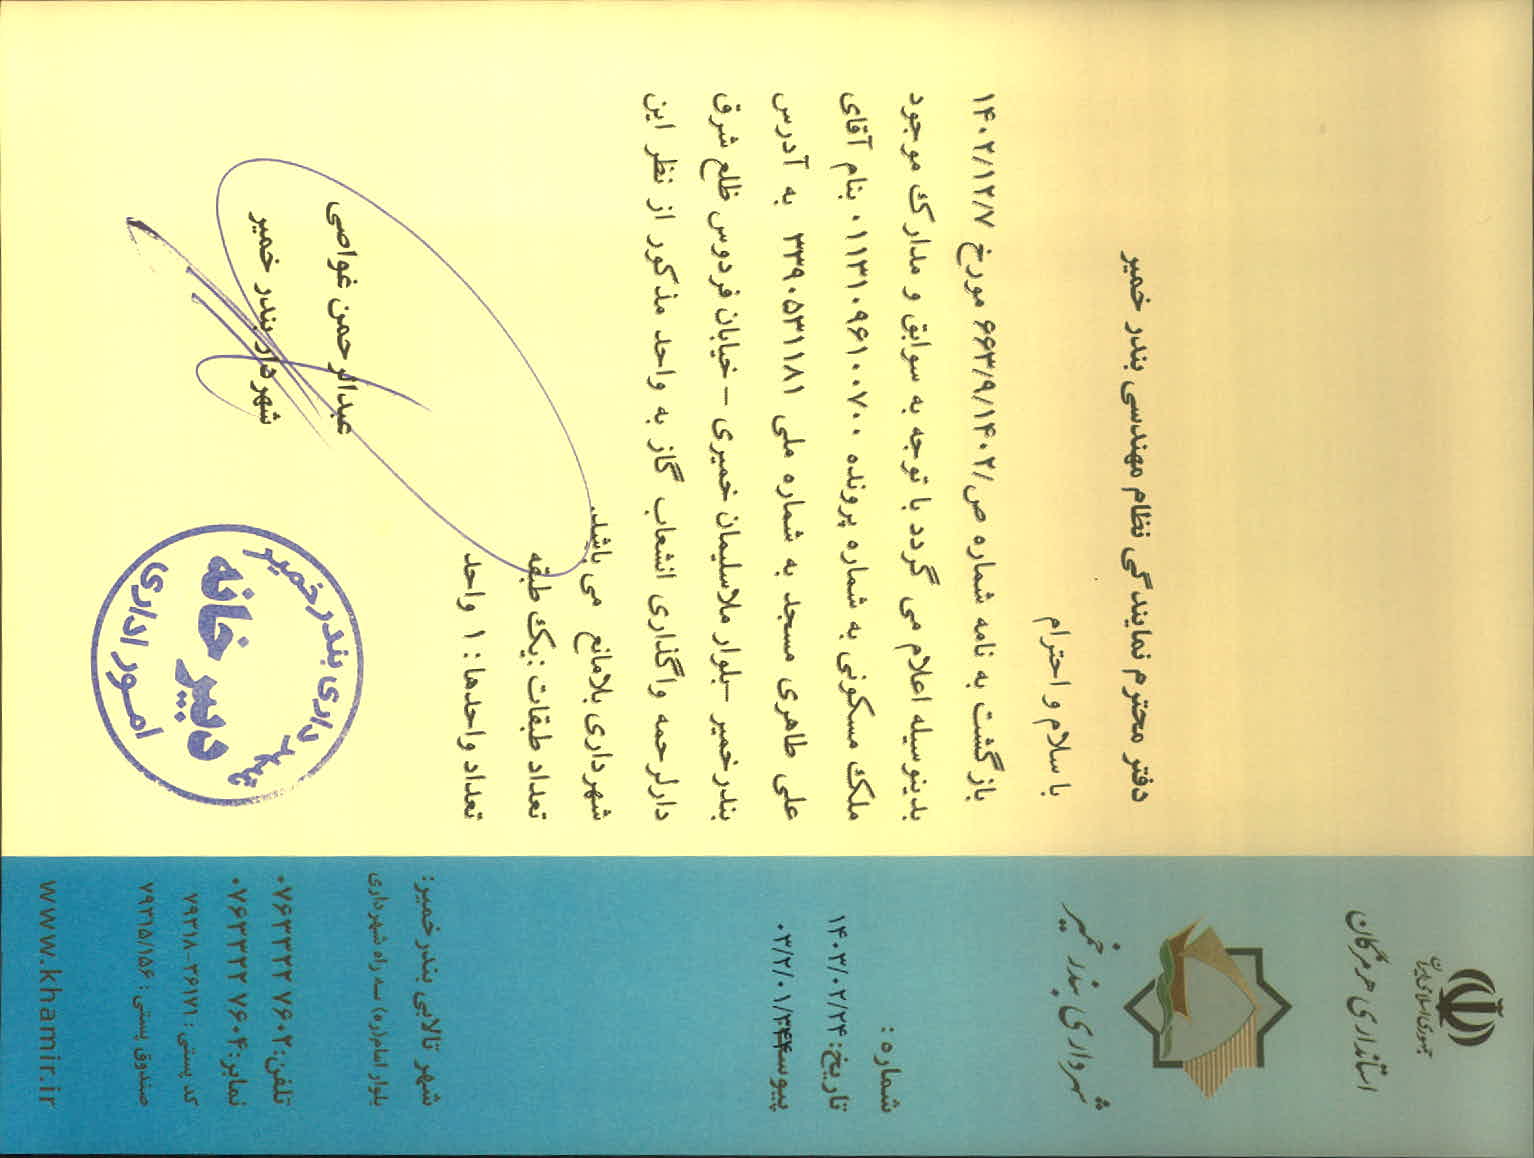 جمهوری اسلامی ایران
استانداری هرمزگان
شهرداری بندر خمیر
شماره :
تاریخ: ۱۴۰۳/۰۲/۲۴
پیوست ۰۳/۲/۰۱/۳۴۴
دفتر محترم نمایندگی نظام مهندسی بندر خمیر
با سلام و احترام
بازگشت به نامه شماره ص/۶۶۳/۹/۱۴۰۲ مورخ ۱۴۰۲/۱۲/۷
بدینوسیله اعلام می گردد با توجه به سوابق و مدارک موجود
ملک مسکونی به شماره پرونده ۰۱۱۳۱۰۹۶۱۰۰۷۰۰ بنام آقای
علی طاهری مسجد به شماره ملی ۳۳۹۰۵۳۱۱۸۱ به آدرس
بندرخمیر -بلوار ملاسلیمان خمیری – خیابان فردوس ظلع شرق
دارلرحمه واگذاری انشعاب گاز به واحد مذکور از نظر این
شهرداری بلامانع می باشد.
تعداد طبقات :یک طبقه
تعداد واحدها : ۱ واحد
عبدالرحمن غواصی
شهردار بندر خمیر
شهرداری بندرخمیر
دبیرخانه
امور اداری
شهر تالابی بندر خمیر:
بلوار امام(ره) سه راه شهرداری
تلفن: ۰۷۶۳۳۲۲۷۶۰۲
نمابر: ۰۷۶۳۳۲۲۷۶۰۴
کد پستی : ۷۹۳۱۸-۳۶۱۷۱
صندوق پستی : ۷۹۳۱۵/۱۵۶
www.khamir.ir